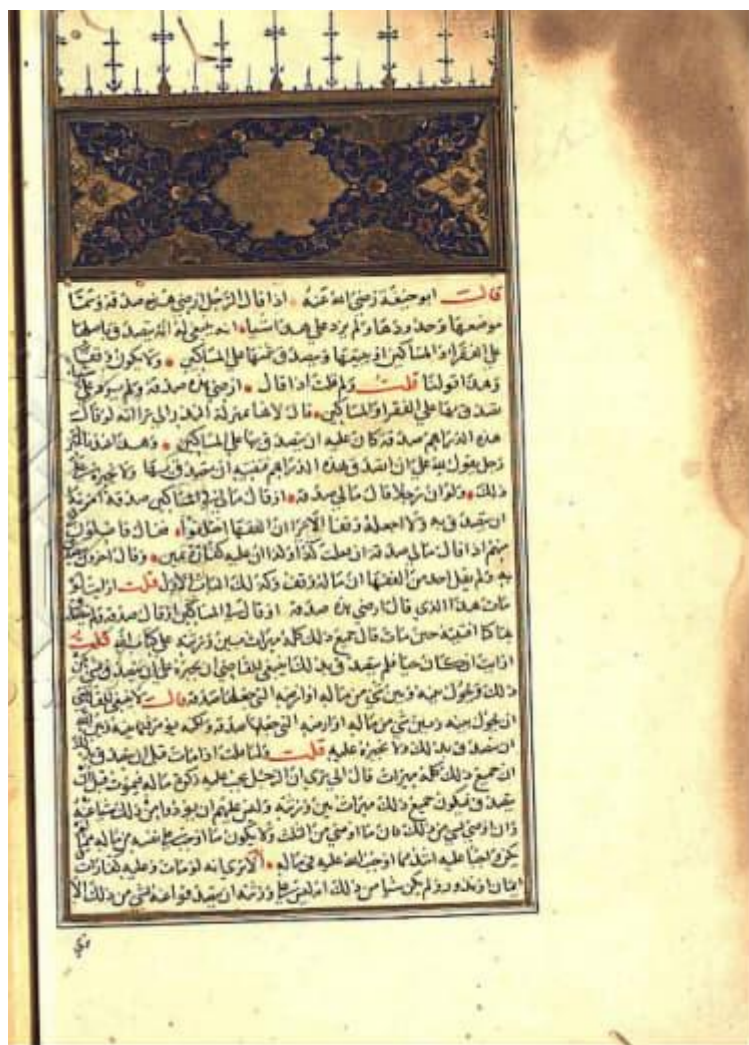 قالـــ ابو حنيفة رضي الله عنه اذا قال الرجل ارضي هذه صدقة وسمى
موضعها وحددها ولم يزد على هذا شيا انه ينبغي له ان يتصدق باصلها
على الفقرا والمساكين او يبيعها ويتصدق بثمنها على المساكين ولا يكون وقفا
وهذا قولنا قلت ولم قلت اذا قال ارضي هذه صدقة ولم
يتصدق بها على الفقرا والمساكين قال لانها بمنزلة النذر الا ترى انه لو قال
هذه الدراهم صدقة كان عليه ان يتصدق بها على المساكين وهذا
رجل يقول لله علي ان اتصدق بهذه الدراهم فينبغي ان يتصدق بها ولا يجبره على
ذلك ولو ان رجلا قال مالي صدقة او قال مالي في المساكين صدقة امرته
ان يتصدق به ولا اجعله وقفا الا ترى ان الفقها اختلفوا فقال قايلون
منهم اذا قال مالي صدقة ان فعلت كذا وكذا ان عليه كفارة يمين وقال اخرون
به ولم يقل احد من الفقها ان ماله وقف وكذلك الباب الاول قلت ارايت لو
مات هذا الذي قال ارضي هذه صدقة او قال في المساكين او قال صدقة فلم
حتى مات قال جميع ذلك كله ميراث بين ورثته على كتاب الله قلت
ارايت ان كان حيا فلم يتصدق بذلك اينبغي للقاضي ان يجبره على ان يتصدق بشي من
ذلك ويحول بينه وبين شي من ماله او ارضه التي جعلها صدقة قال لا ينبغي للقاضي
ان يحول بينه وبين شي من ماله او ارضه التي جعلها صدقة ولكنه يومر فيما بينه وبين
ان يتصدق بذلك ولا يجبره عليه قلت ولم قلت اذا مات قبل ان يتصدق
ان جميع ذلك كله ميراث قال الا ترى ان الرجل يجب عليه زكاة ماله فيموت قبل ان
يتصدق فيكون جميع ذلك ميراث بين ورثته وليس عليهم ان يودوا من ذلك شيا عنه
وان اوصى بشي من ذلك فان ما اوصى من الثلث ولا يكون ما اوجب على نفسه من ماله مما
يكن واجبا عليه اشد مما اوجب الله عليه في ماله الا ترى انه لو مات وعليه كفارات
ايمان او نذور ولم يكن شيا من ذلك انه ليس على ورثته ان يتصدقوا عنه بشي من ذلك الا